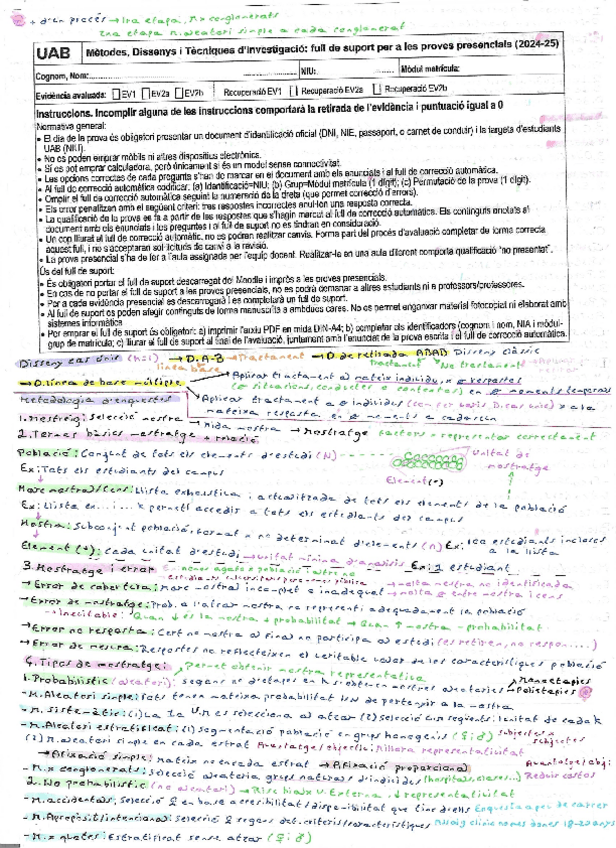 + d'en procés → 1ra etapa, M. x conglomerats
2na etapa M. aleatori simple a cada conglomerat
UAB Mètodes, Dissenys i Tècniques d'Investigació: full de suport per a les proves presencials (2024-25)
Cognom, Nom: NIU: Mòdul matrícula:
Evidència avaluada: EV1 EV2a EV2b Recuperació EV1 Recuperació EV2a Recuperació EV2b
Instruccions. Incomplir alguna de les instruccions comportarà la retirada de l'evidència i puntuació igual a 0
Normativa general:
• El dia de la prova és obligatori presentar un document d'identificació oficial (DNI, NIE, passaport, o carnet de conduir) i la targeta d'estudiants
UAB (NIU).
• No es poden emprar mòbils ni altres dispositius electrònics.
• Sí es pot emprar calculadora, però únicament si és un model sense connectivitat.
• Les opcions correctes de cada pregunta s'han de marcar en el document amb els enunciats i al full de correcció automàtica.
• Al full de correcció automàtica codificar: (a) Identificació=NIU; (b) Grup=Mòdul matrícula (1 dígit); (c) Permutació de la prova (1 dígit).
• Omplir el full de correcció automàtica seguint la numeració de la dreta (que permet correcció d'errors).
• Els errors penalitzen amb el següent criteri: tres respostes incorrectes anul·len una resposta correcta.
• La qualificació de la prova es fa a partir de les respostes que s'hagin marcat al full de correcció automàtica. Els continguts anotats al
document amb els enunciats i les preguntes i al full de suport no es tindran en consideració.
• Un cop lliurat el full de correcció automàtic, no es podran realitzar canvis. Forma part del procés d'avaluació completar de forma correcta
aquest full, i no s'acceptaran sol·licituds de canvi a la revisió.
• La prova presencial s'ha de fer a l'aula assignada per l'equip docent. Realitzar-la en una aula diferent comporta qualificació "no presentat".
Ús del full de suport:
• És obligatori portar el full de suport descarregat del Moodle i imprès a les proves presencials.
• En cas de no portar el full de suport a les proves presencials, no es podrà demanar a altres estudiants ni a professors/professores.
• Per a cada evidència presencial es descarregarà i es completarà un full de suport.
• Al full de suport es poden afegir continguts de forma manuscrita a ambdues cares. No es permet enganxar material fotocopiat ni elaborat amb
sistemes informàtics
• Per emprar el full de suport és obligatori: a) imprimir l'arxiu PDF en mida DIN-A4; b) completar els identificadors (cognom i nom, NIA i mòdul-
grup de matrícula); c) lliurar el full de suport al final de l'avaluació, juntament amb l'enunciat de la prova escrita i el full de correcció automàtica.
Disseny cas únic (n=1) → D. A-B → Tractament → D de retirada ABAB Disseny clàssic
línea base Tractament No tractament
→ D. línea de base múltiple → Aplicar tractament al mateix individu, a respostes
(situacions, conductes o contextos) en moments temporals
Metodologia d'enquestes → Aplicar tractament a individus
mateixa resposta en moments a cadascun
1. Mostreig: Selecció mostra → Mida mostra → Mostratge factors - representar correctament
2. Termes bàsics mostratge + relació
Població: Conjunt de tots els elements d'estudi (N) Unitat de
mostratge
Ex: Tots els estudiants del campus Element (•)
Marc mostral/Cens: Llista exhaustiva i actualitzada de tots els elements de la població
Ex: Llista permeti accedir a tots els estudiants del campus
Mostra: Subconjunt població, format x nº determinat d'elements (n) Ex: 100 estudiants inclosos
a la llista
Element (•): Cada unitat d'estudi → unitat mínima d'anàlisis Ex: 1 estudiant
3. Mostratge i error
→ Error de cobertura: Marc mostral incomplet o inadequat → molta entre mostra i cens
→ Error de mostratge: Prob. a l'atzar mostra no representi adequadament la població
→ Inevitable: Quan és la mostra probabilitat → Quan mostra - probabilitat
→ Error no resposta: Cert nº mostra al final no participa al estudi (es retiren, no respon....)
→ Error de mesura: Respostes no reflecteixen el veritable valor de les característiques població
4. Tipus de mostratge: Permet obtenir mostra representativa
1. Probabilístic (aleatori): segons nº d'etapes en k s'obtenen mostres aleatòries → Monoetàpics
→ Polietàpics
- M. Aleatori simple: Tots tenen mateixa probabilitat de pertenyir a la mostra
- M. Sistemàtic: (1) La 1a U.M es selecciona al atzar (2) Selecció següents: 1 unitat de cada k
- M. Aleatori estratificat: (1) segmentació població en grups homogenis (♀ i ♂) subjectes
(2) M. aleatori simple en cada estrat Avantatge/objectiu: Millora representativitat
→ Afixació simple: Mateix nº en cada estrat → Afixació proporcional Avantatge/obj:
- M. x conglomerats: Selecció aleatòria grups naturals d'individus (hospitals, classes...) Reduir costos
2. No probabilístic (no aleatori) → Risc biaix V. Externa ↓ representativitat
- M. accidental: Selecció en base accessibilitat/disponibilitat que tinc d'ells Enquesta a peu de carrer
- M. A propòsit/intencional: Selecció segons det. criteris/característiques Assaig clínic només dones 18-20 anys
- M. x quotes: Estratificat sense atzar (♀ i ♂)